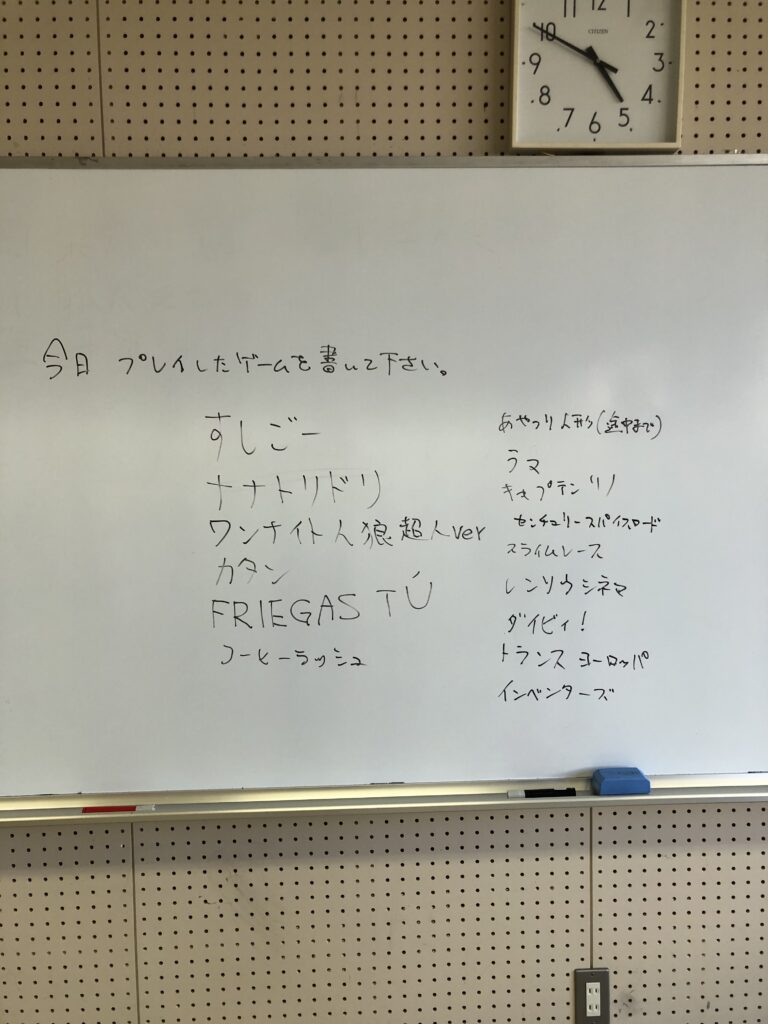 11 12 1
10 2
CITIZEN
9 3
8 4
7 6 5
今日 プレイしたゲームを書いて下さい。
すしごー
ナナトリドリ
ワンナイト人狼 超人ver
カタン
FRIEGAS TÚ
コーヒーラッシュ
あやつり人形(途中まで)
ラマ
キャプテンリノ
センチュリースパイスロード
スライムレース
レンソウシネマ
ダイビィ!
トランス ヨーロッパ
インベンターズ